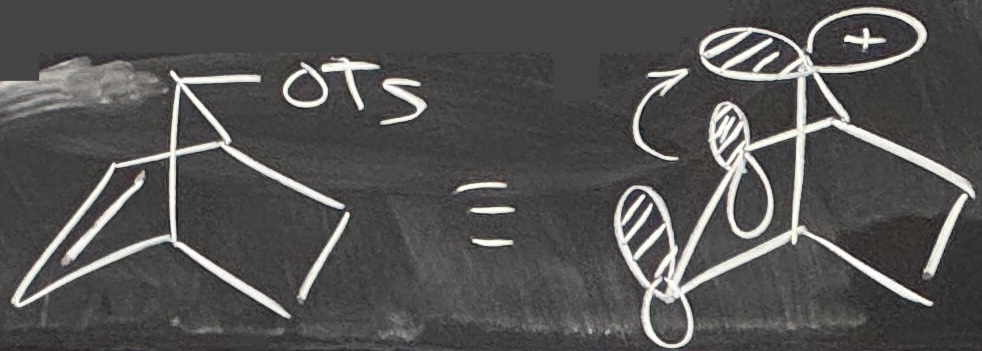 OTs
≡
+